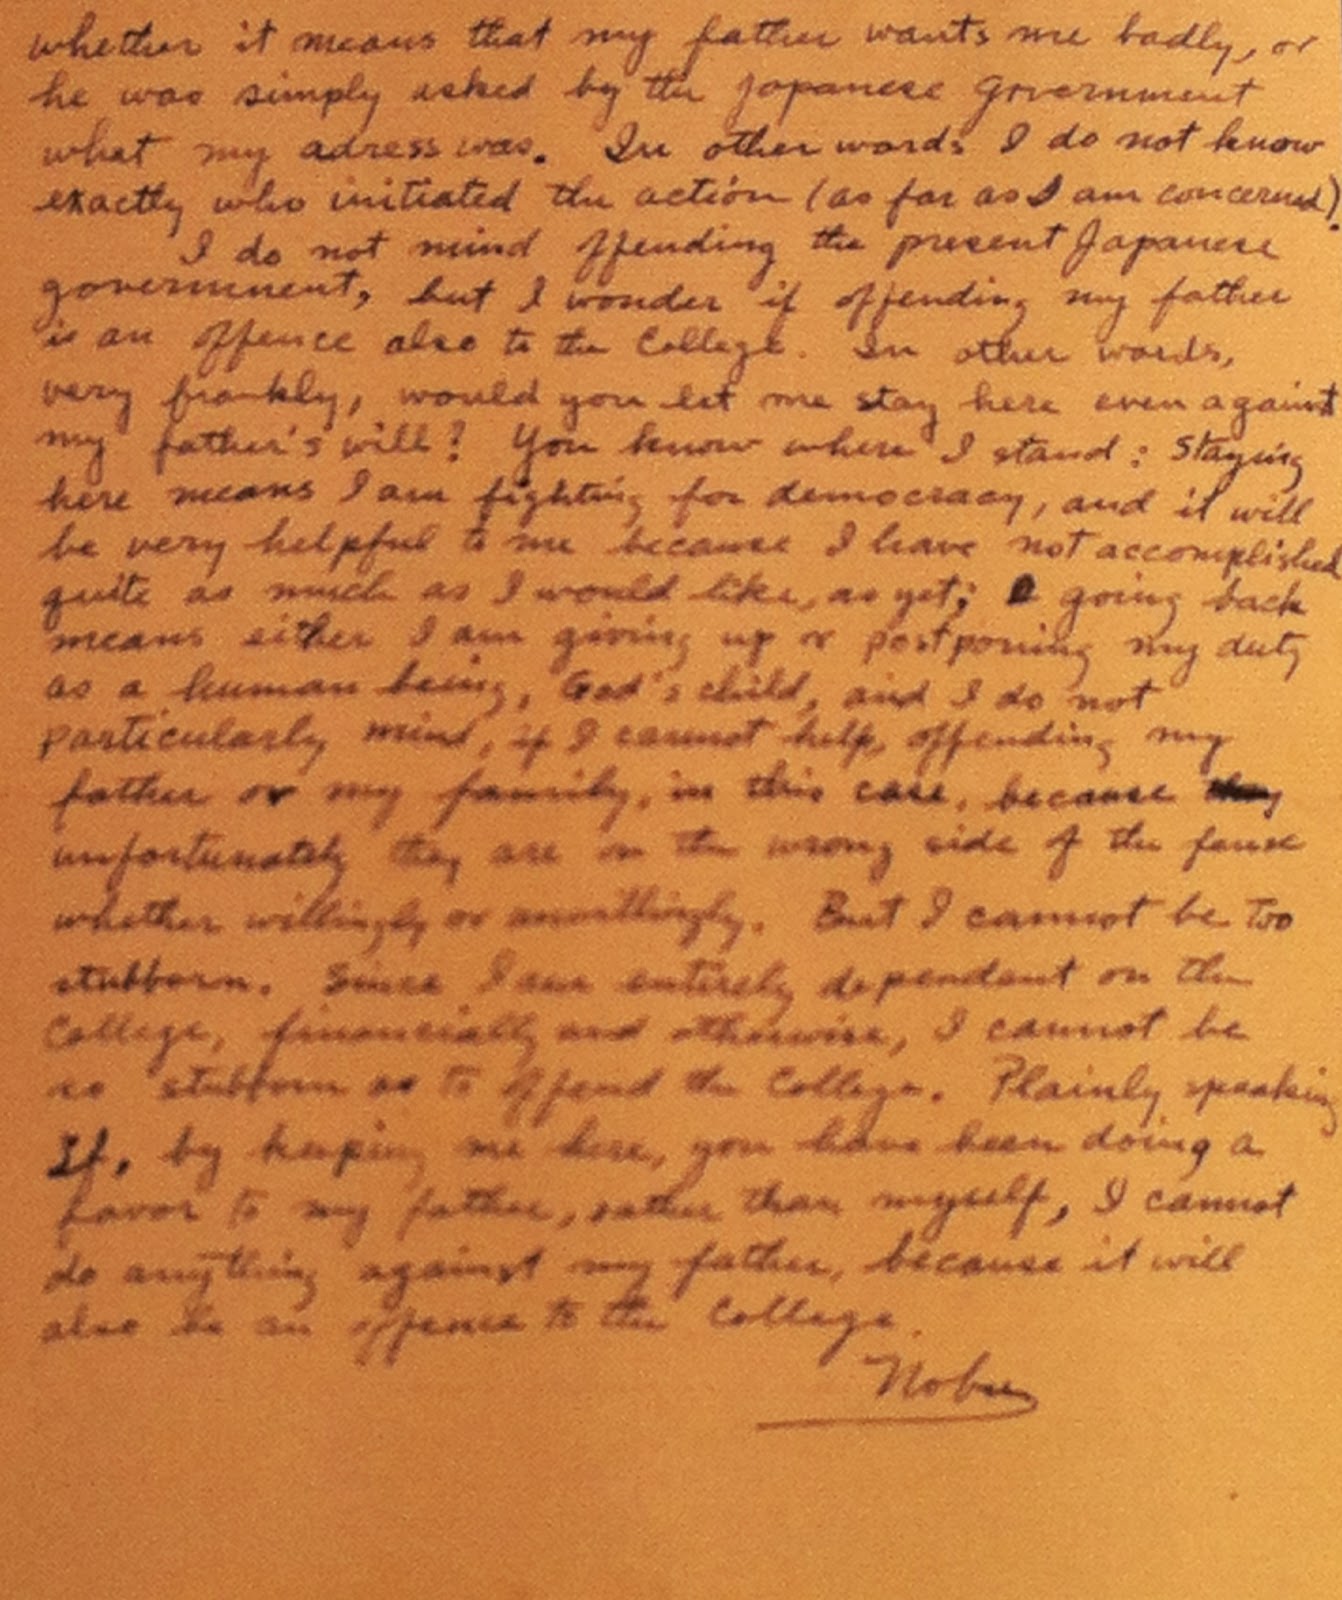 whether it means that my father wants me badly, or
he was simply asked by the Japanese Government
what my adress was. In other words I do not know
exactly who initiated the action (as far as I am concerned).
I do not mind offending the present Japanese
government, but I wonder if offending my father
is an offence also to the College. In other words,
very frankly, would you let me stay here even against
my father's will? You know where I stand: Staying
here means I am fighting for democracy, and it will
be very helpful to me because I have not accomplished
quite as much as I would like, as yet; going back
means either I am giving up or postponing my duty
as a human being, God's child, and I do not
particularly mind, if I cannot help, offending my
father or my family, in this case, because
unfortunately they are on the wrong side of the fense
whether willingly or unwillingly. But I cannot be too
stubborn. Since I am entirely dependant on the
College, financially and otherwise, I cannot be
so stubborn as to offend the College. Plainly speaking
If, by keeping me here, you have been doing a
favor to my father, rather than myself, I cannot
do anything against my father, because it will
also be an offence to the College.
Nobu